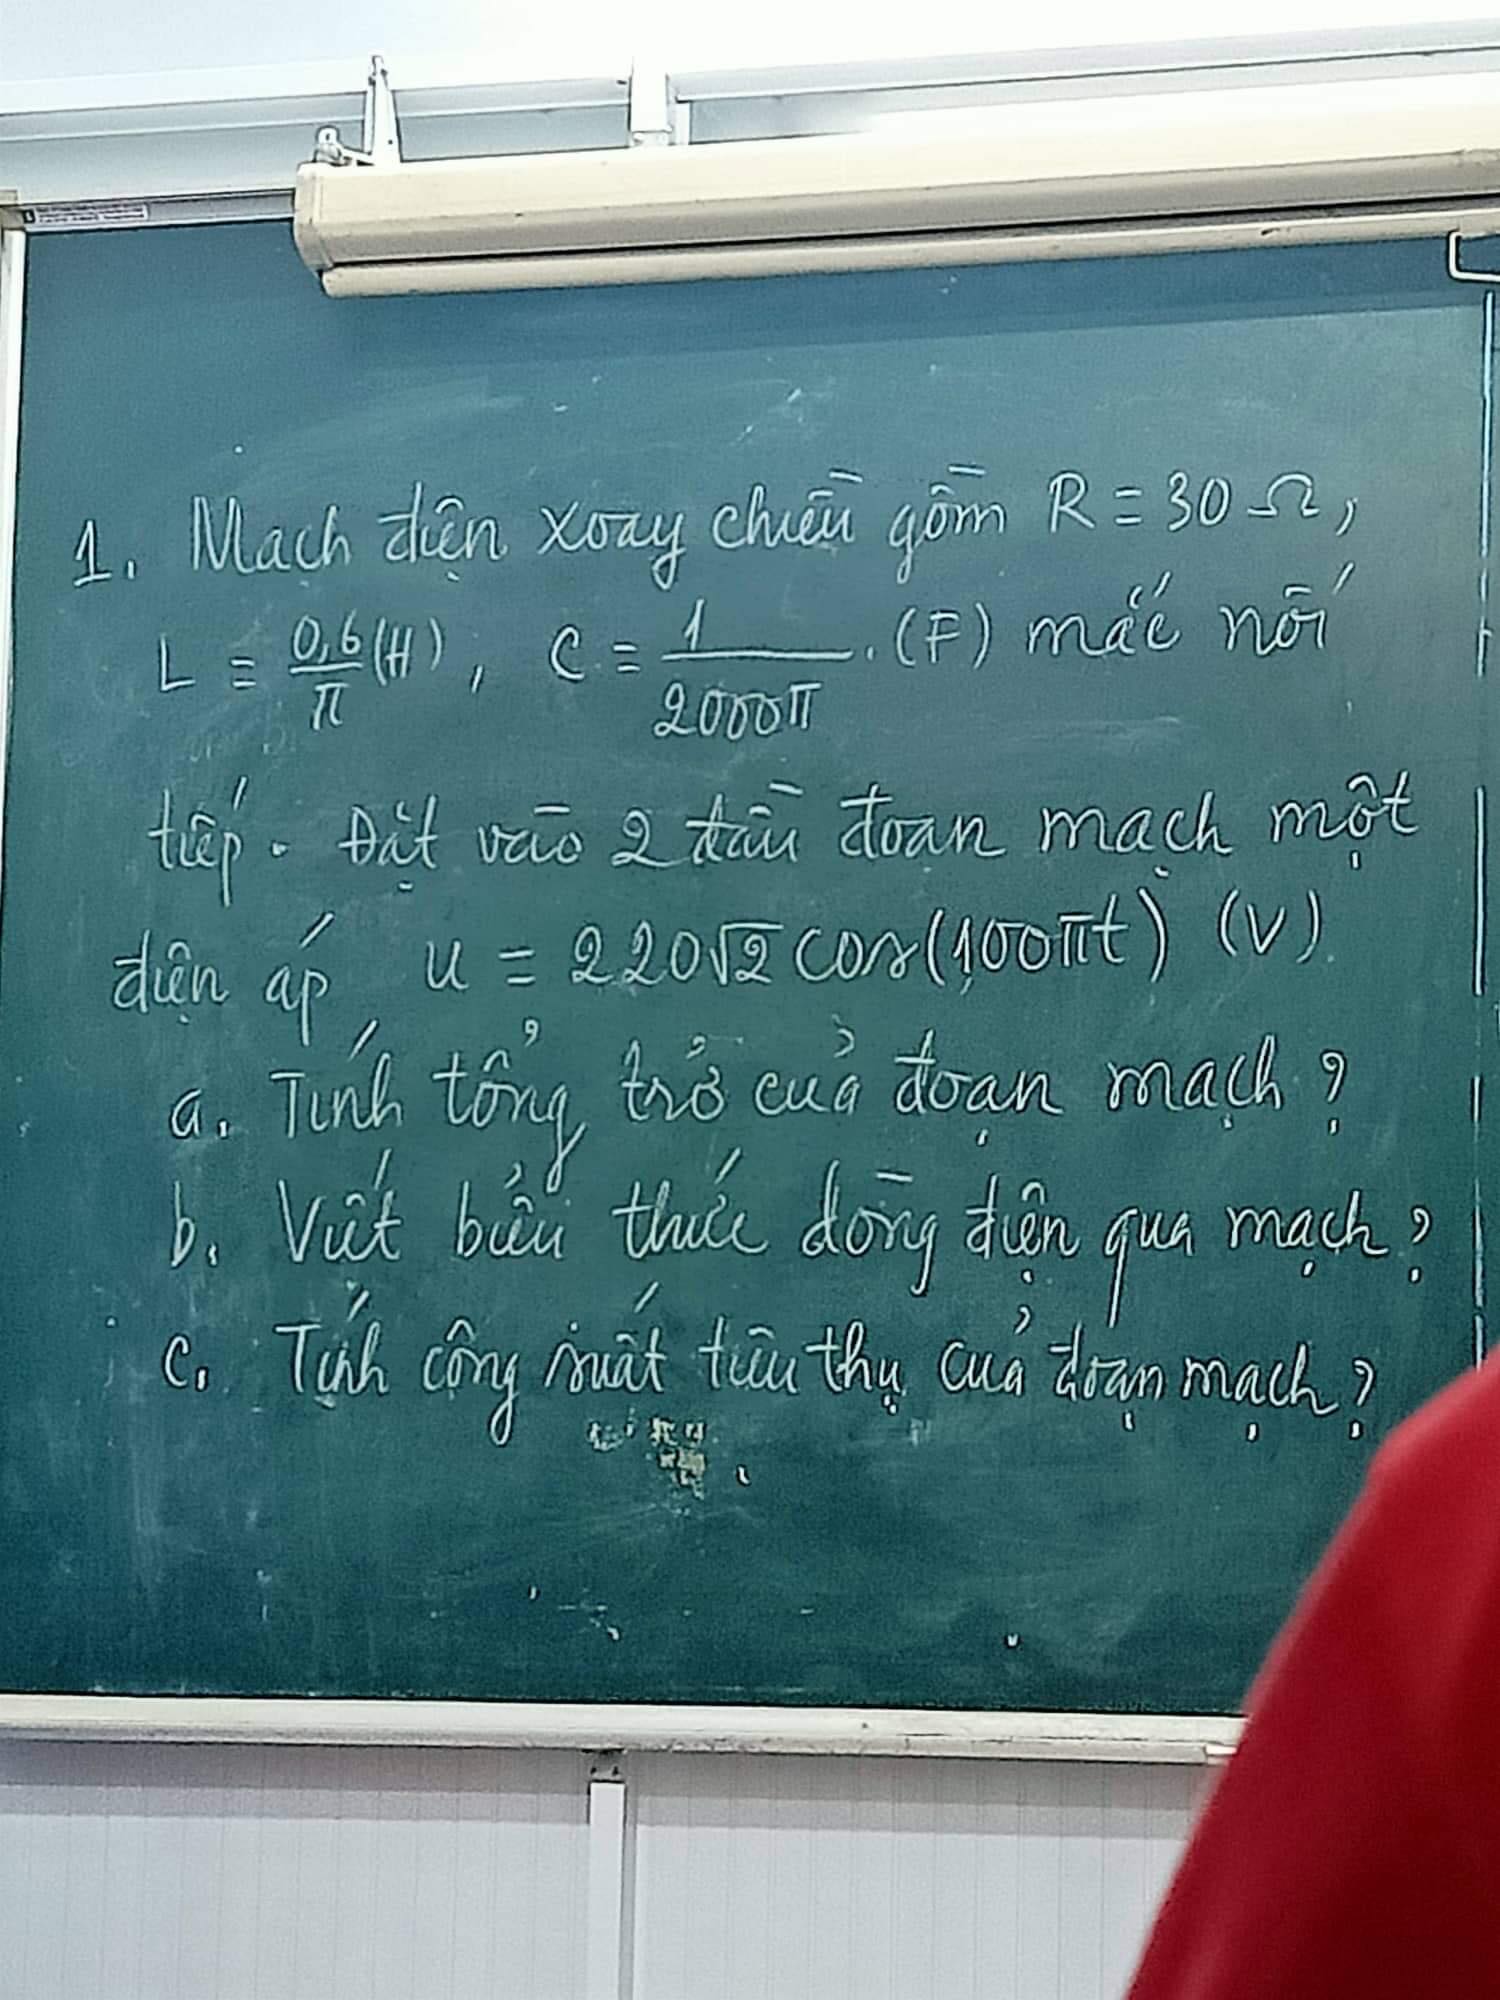 1. Mạch điện xoay chiều gồm R = 30 Ω,
L = 0,6/π (H), C = 1/2000π . (F) mắc nối
tiếp. Đặt vào 2 đầu đoạn mạch một
điện áp u = 220√2 cos(100πt) (V).
a. Tính tổng trở của đoạn mạch?
b. Viết biểu thức dòng điện qua mạch?
c. Tính công suất tiêu thụ của đoạn mạch?